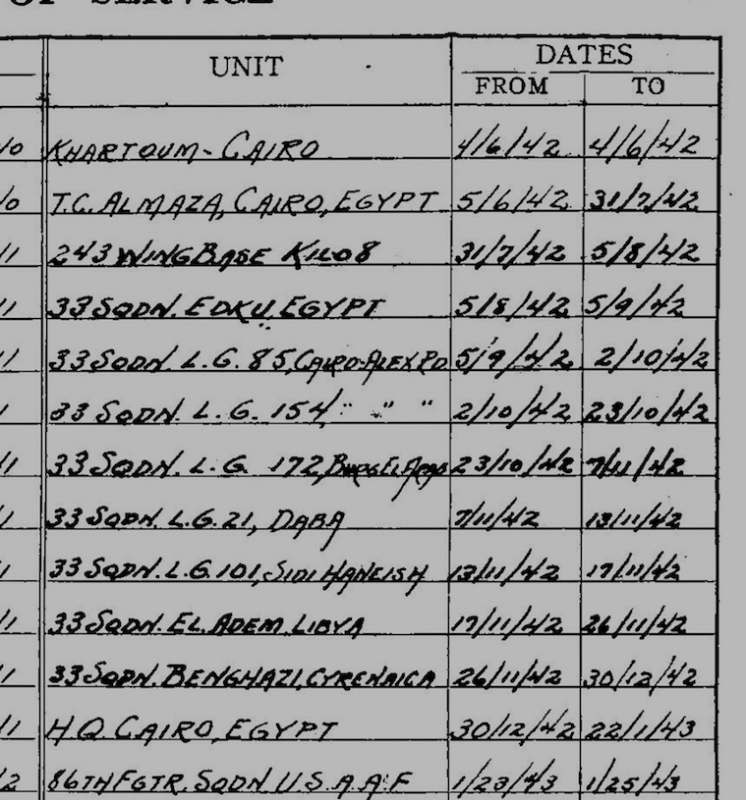 OF SERVICE
UNIT DATES
FROM TO
/0 KHARTOUM- CAIRO 4/6/42 4/6/42
/0 T.C. ALMAZA, CAIRO, EGYPT 5/6/42 31/7/42
/1 243 WING BASE KILO 8 31/7/42 5/8/42
/1 33 SQDN. EDKU, EGYPT 5/8/42 5/9/42
/1 33 SQDN. L.G. 85, CAIRO-ALEX RD. 5/9/42 2/10/42
/ 33 SQDN. L.G. 154 " " " 2/10/42 23/10/42
/1 33 SQDN. L.G. 172, BURG EL ARAB 23/10/42 7/11/42
/1 33 SQDN. L.G. 21, DABA 7/11/42 13/11/42
/ 33 SQDN. L.G. 101, SIDI HANEISH 13/11/42 17/11/42
/1 33 SQDN. EL ADEM LIBYA 17/11/42 26/11/42
/1 33 SQDN. BENGHAZI, CYRENAICA 26/11/42 30/12/42
/1 H.Q. CAIRO, EGYPT 30/12/42 22/1/43
/2 86TH FGTR. SQDN U.S.A.A.F 1/23/43 1/25/43